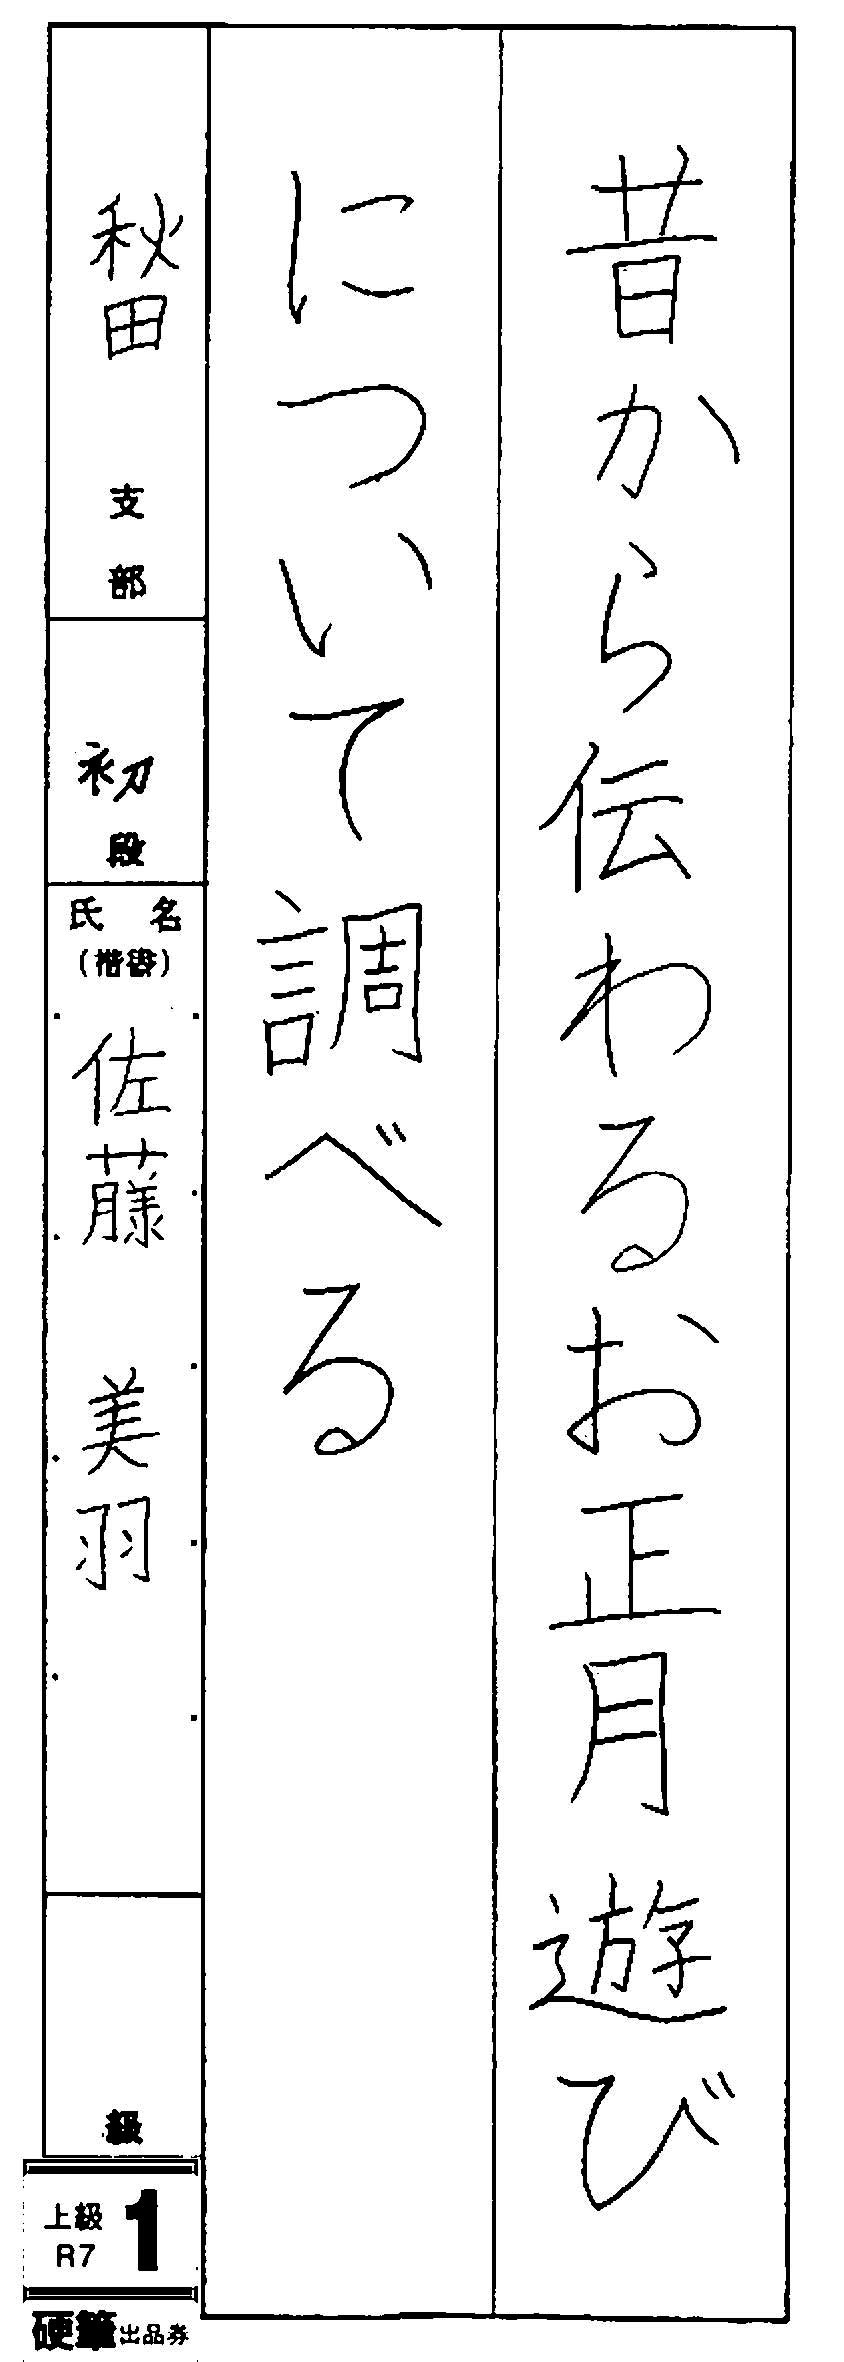 昔から伝わるお正月遊び
について調べる
秋田支部
初段
氏名
(楷書)
佐藤 美羽
級
上級 1
R7
硬筆出品券